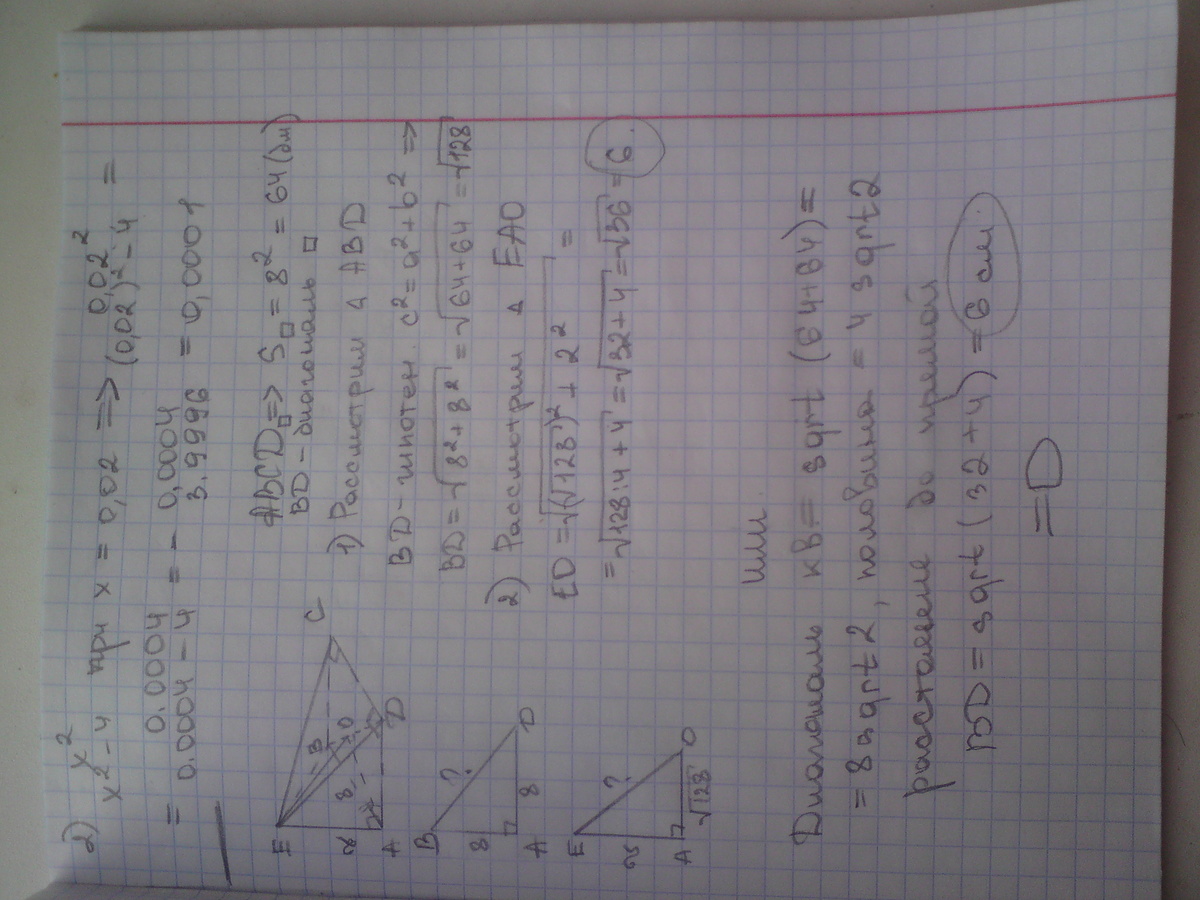 2) x²
x2-4 при x = 0,02 => 0,02²
(0,02)²-4 =
= 0.0004
0.0004-4 = - 0,0004
3.9996 = -0,0001
ABCD□=> S□ = 8² = 64(дм)
BD-диагональ □
1) Рассмотрим Δ ABD
BD-гипотен. c²=a²+b² =>
BD=√8²+8² = √64+64 = √128
2) Рассмотрим Δ EAO
ED=√(√128)² + 2² =
= √128:4+4 = √32+4 = √36 = 6.
E
C
B
O
8
2
A
D
B
?
8
D
A
8
E
?
2
O
A
√128
или
Диагональ кв= sqrt (64+64)=
= 8 sqrt2, половина = 4 sqrt2
расстояние до прямой
BD = sqrt (32+4) = 6 см.
=D